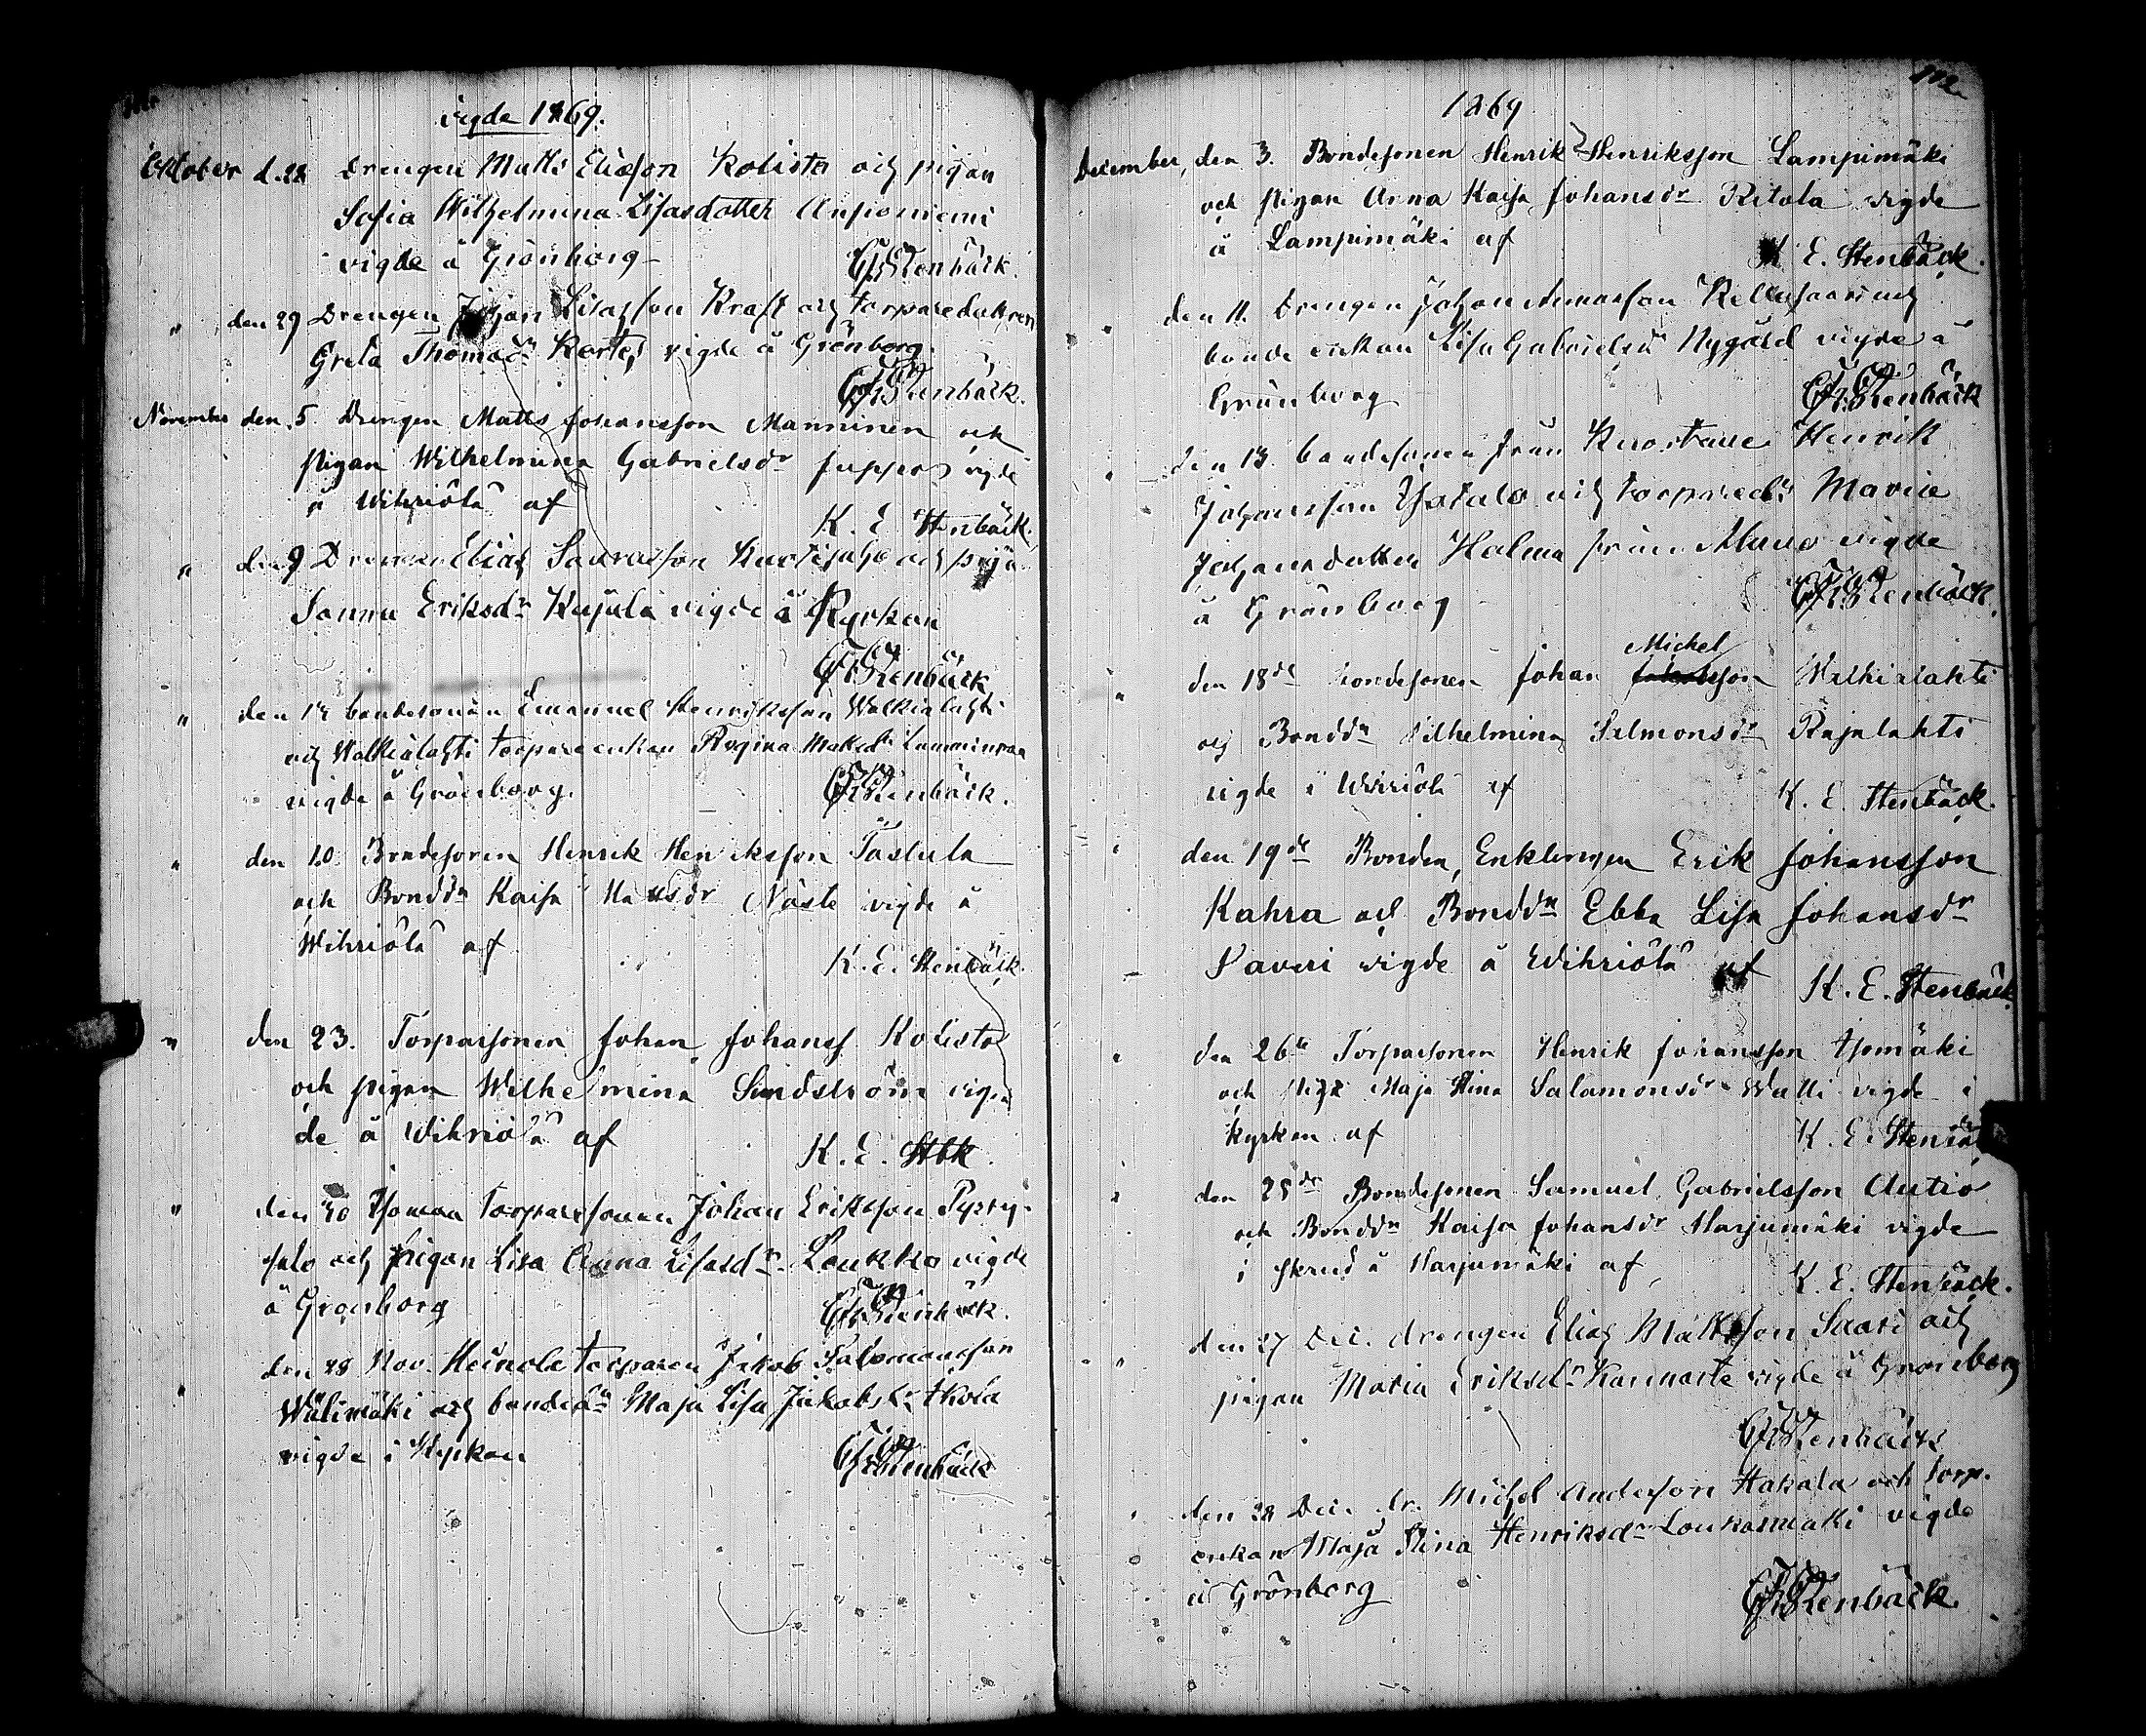 Vigde 1869.
Oktober d. 22 Drengen Matts Eliasson Kolisto och pigan
Sofia Wilhelmina Lisasdotter Anssoniemi
vigde å Grönborg
CFrStenbäck.
" den 29 Drengen Johan Lisasson Kraft och torparedottren
Greta Thomasdr Kortes vigde å Grönborg.
CFrStenbäck.
November den 5. Drengen Matts Johansson Manninen och
Pigan Wilhelmina Gabrielsdr Juppo vigde
å Wihriälä af
K. E. Stenbäck.
" den 9 Drengen Elias och
Sanna Eriksdr Kujala vigde i Kyrkan
CFrStenbäck
" den bondesonen Emanuel Henriksson Walkialahti
och Walkialahti torpareenkan Regina Matsdr
vigde å Grönborg.
CFrStenbäck.
" den 20. Bondesonen Henrik Henriksson Tastula
och Bonddn Kaisa Mattsdr vigde å
Wihriälä af
K. E. Stenbäck.
" den 23. Torparsonen Johan Johanss. Kolisto
och pigan Wilhelmina Sundström vig-
de å Wihriälä af
K. E. Stbk.
" den 30 Torparesonen Johan Eriksson Pyssy-
salo och pigan Lisa Anna Lisasdr. Loukko vigde
å Grönborg
CFrStenbäck.
" den 28 Nov. Torparen Jakob Salomonsson
Wälimäki och bondedn Maja Lisa Jakobsdr
vigde i Kyrkan
CFrStenbäck
1869
112
December, den 3. Bondesonen Henrik Henriksson Lampimäki
och Pigan Anna Kaisa Johansdr Ritola vigde
å Lampimäki af
K. E. Stenbäck.
" den 11. Drengen Johan och
bonde enkan Lisa Gabrielsdr Nygård vigde å
Grönborg
CFrStenbäck
" den 13. bondesonen från Kuortane Henrik
Johansson Ylitalo och torparedr Maria
Johansdotter Holma från Alavo vigde
å Grönborg
CFrStenbäck.
Michel
" den 18de Bondesonen Johan Jakobsson Walkialahti
och Bonddn Wilhelmina Salmonsdr Rajalahti
vigde å Wihriälä af
K. E. Stenbäck.
" den 19de Bonden, Enklingen Erik Johansson
Kahra och Bonddn Ebba Lisa Johansdr
Paveri vigde å Wihriälä af
K. E. Stenbäck.
" den 26te Torparsonen Henrik Johansson
och Piga Maja Stina Salamonsdr Walli vigde i
kyrkan af
K. E. Stenbäck
" den 25de Bondesonen Samuel Gabrielsson Autio
och Bonddn Kaisa Johansdr Harjumäki vigde
i skrud å Harjumäki af
K. E. Stenbäck.
" den 27 Dec. drengen Elias Mattsson Saari och
pigan Maria Eriksdr vigde å Grönborg
CFrStenbäck
" den 28 Dec. dr. Michel Andersson Hakala och torp.
enkan Maja Stina Henriksdr Loukasmäki vigde
å Grönborg
CFrStenbäck.